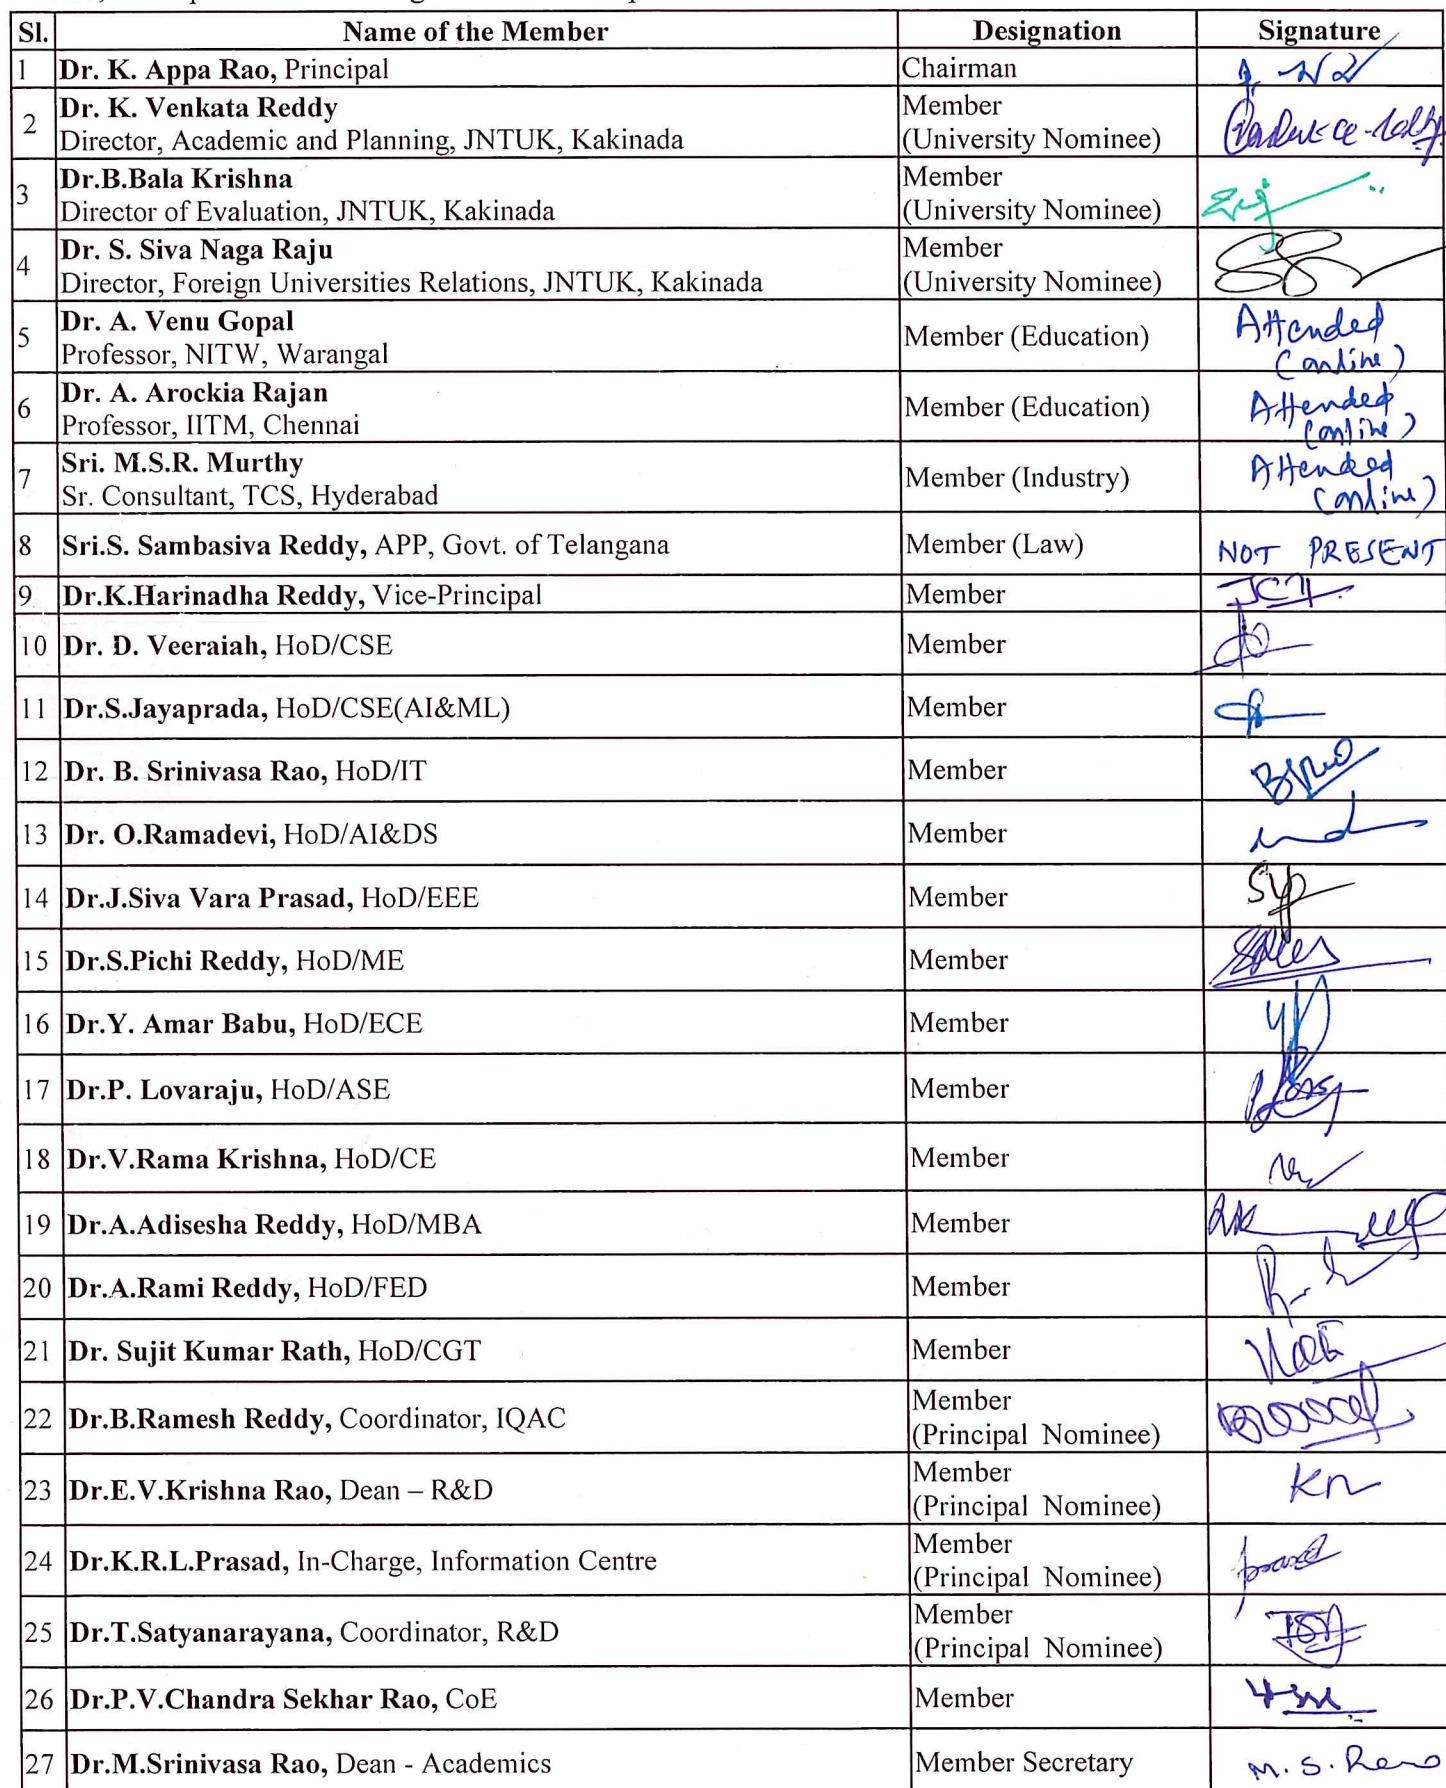 Sl. Name of the Member Designation Signature
1 Dr. K. Appa Rao, Principal Chairman
2 Dr. K. Venkata Reddy
Director, Academic and Planning, JNTUK, Kakinada
Member
(University Nominee)
3 Dr.B.Bala Krishna
Director of Evaluation, JNTUK, Kakinada
Member
(University Nominee)
4 Dr. S. Siva Naga Raju
Director, Foreign Universities Relations, JNTUK, Kakinada
Member
(University Nominee)
5 Dr. A. Venu Gopal
Professor, NITW, Warangal
Member (Education)
Attended
(online)
6 Dr. A. Arockia Rajan
Professor, IITM, Chennai
Member (Education)
Attended
(online)
7 Sri. M.S.R. Murthy
Sr. Consultant, TCS, Hyderabad
Member (Industry)
Attended
(online)
8 Sri.S. Sambasiva Reddy, APP, Govt. of Telangana Member (Law) NOT PRESENT
9 Dr.K.Harinadha Reddy, Vice-Principal Member
10 Dr. D. Veeraiah, HoD/CSE Member
11 Dr.S.Jayaprada, HoD/CSE(AI&ML) Member
12 Dr. B. Srinivasa Rao, HoD/IT Member
13 Dr. O.Ramadevi, HoD/AI&DS Member
14 Dr.J.Siva Vara Prasad, HoD/EEE Member
15 Dr.S.Pichi Reddy, HoD/ME Member
16 Dr.Y. Amar Babu, HoD/ECE Member
17 Dr.P. Lovaraju, HoD/ASE Member
18 Dr.V.Rama Krishna, HoD/CE Member
19 Dr.A.Adisesha Reddy, HoD/MBA Member
20 Dr.A.Rami Reddy, HoD/FED Member
21 Dr. Sujit Kumar Rath, HoD/CGT Member
22 Dr.B.Ramesh Reddy, Coordinator, IQAC
Member
(Principal Nominee)
23 Dr.E.V.Krishna Rao, Dean – R&D
Member
(Principal Nominee)
24 Dr.K.R.L.Prasad, In-Charge, Information Centre
Member
(Principal Nominee)
25 Dr.T.Satyanarayana, Coordinator, R&D
Member
(Principal Nominee)
26 Dr.P.V.Chandra Sekhar Rao, CoE Member
27 Dr.M.Srinivasa Rao, Dean - Academics Member Secretary M. S. Rao